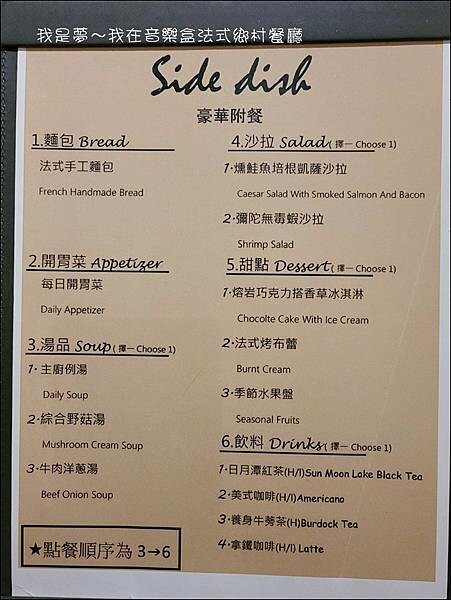 我是夢～我在音樂盒法式鄉村餐廳
Side dish
豪華附餐
1.麵包 Bread
法式手工麵包
French Handmade Bread
2.開胃菜 Appetizer
每日開胃菜
Daily Appetizer
3.湯品 Soup( 擇一 Choose 1)
1· 主廚例湯
Daily Soup
2·綜合野菇湯
Mushroom Cream Soup
3·牛肉洋蔥湯
Beef Onion Soup
★點餐順序為 3→6
4.沙拉 Salad( 擇一 Choose 1)
1·燻鮭魚培根凱薩沙拉
Caesar Salad With Smoked Salmon And Bacon
2·彌陀無毒蝦沙拉
Shrimp Salad
5.甜點 Dessert( 擇一 Choose 1)
1·熔岩巧克力搭香草冰淇淋
Chocolte Cake With Ice Cream
2·法式烤布蕾
Burnt Cream
3·季節水果盤
Seasonal Fruits
6.飲料 Drinks( 擇一 Choose 1)
1·日月潭紅茶(H/I)Sun Moon Lake Black Tea
2·美式咖啡(H/I)Americano
3·養身牛蒡茶(H)Burdock Tea
4·拿鐵咖啡(H/I) Latte